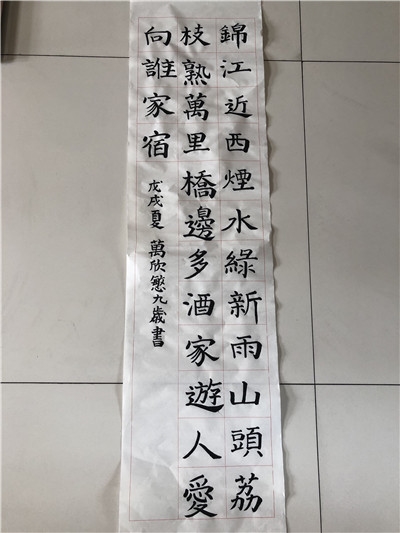 錦江近西煙水綠新雨山頭荔
枝熟萬里橋邊多酒家遊人愛
向誰家宿
戊戌夏 萬欣慜九歲書